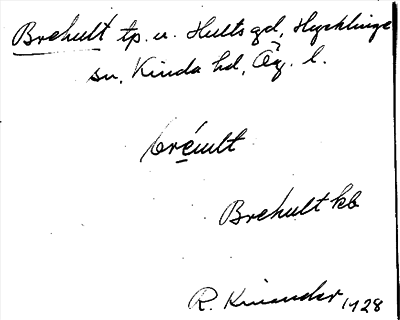 Brehult tp. u. Hults gd, Hycklinge
sn, Kinda hd, Ög. l.
bréult
Brehult kb
R. Kinander 1928